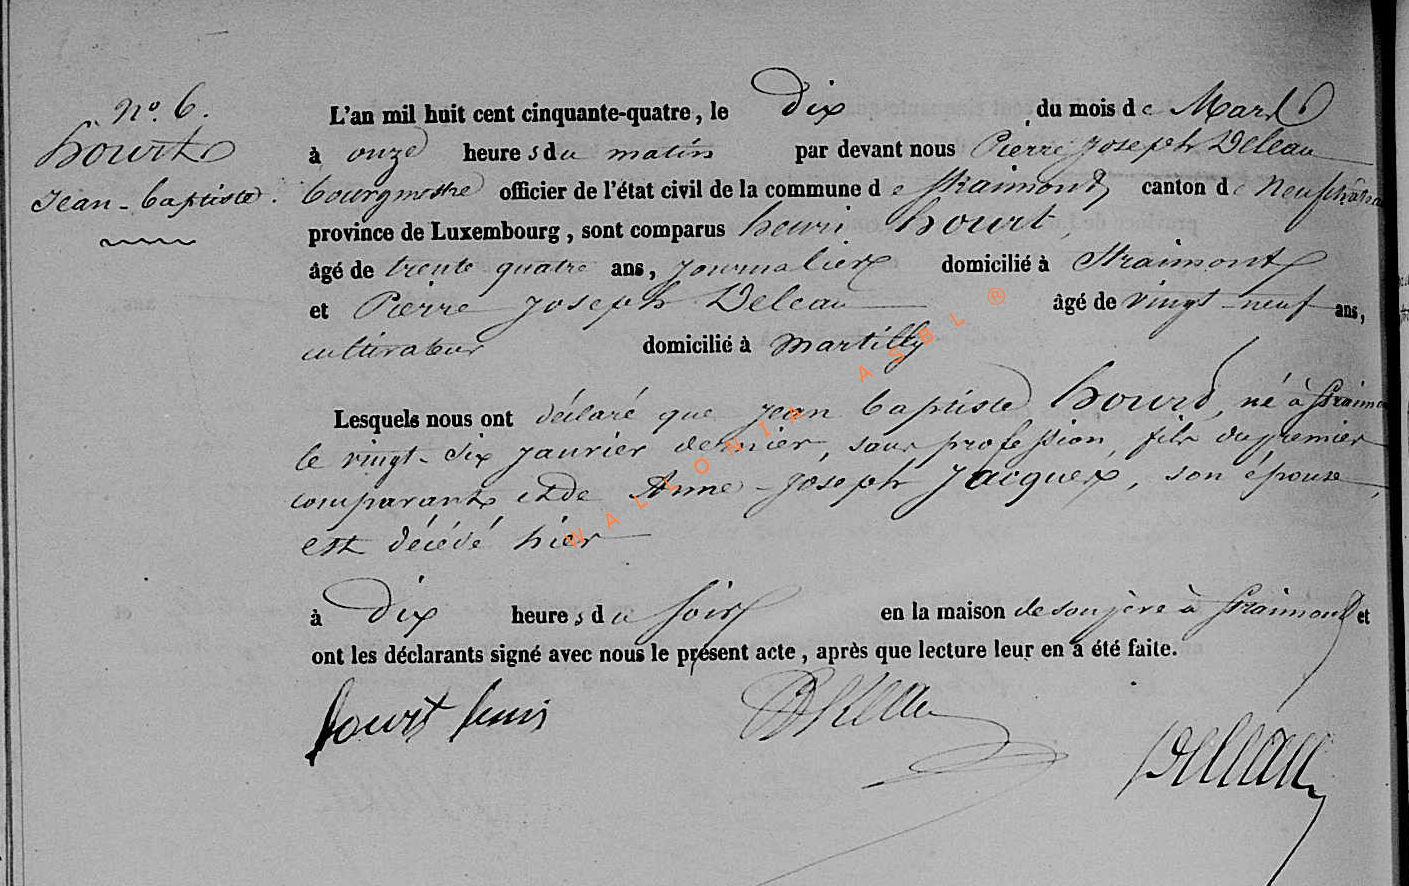 n.° 6.
hourt
Jean-baptiste.
L'an mil huit cent cinquante-quatre, le dix du mois de Mars
à onze heures du matin par devant nous Pierre Joseph Deleau
bourgmestre officier de l'état civil de la commune de Straimont, canton de Neufchâteau
province de Luxembourg, sont comparus henri hourt,
âgé de trente quatre ans, journalier domicilié à Straimont
et Pierre Joseph Deleau âgé de vingt-neuf ans,
cultivateur domicilié à Martilly
Lesquels nous ont déclaré que jean baptiste hourt, né à Straimont
le vingt-six janvier dernier, sans profession, fils du premier
comparant et de Anne-Joseph Jacques, son épouse,
est décédé hier
à dix heures du soir en la maison de son père à Straimont et
ont les déclarants signé avec nous le présent acte, après que lecture leur en a été faite.
hourt henri Deleau Deleau
WALLONIA ASBL ®